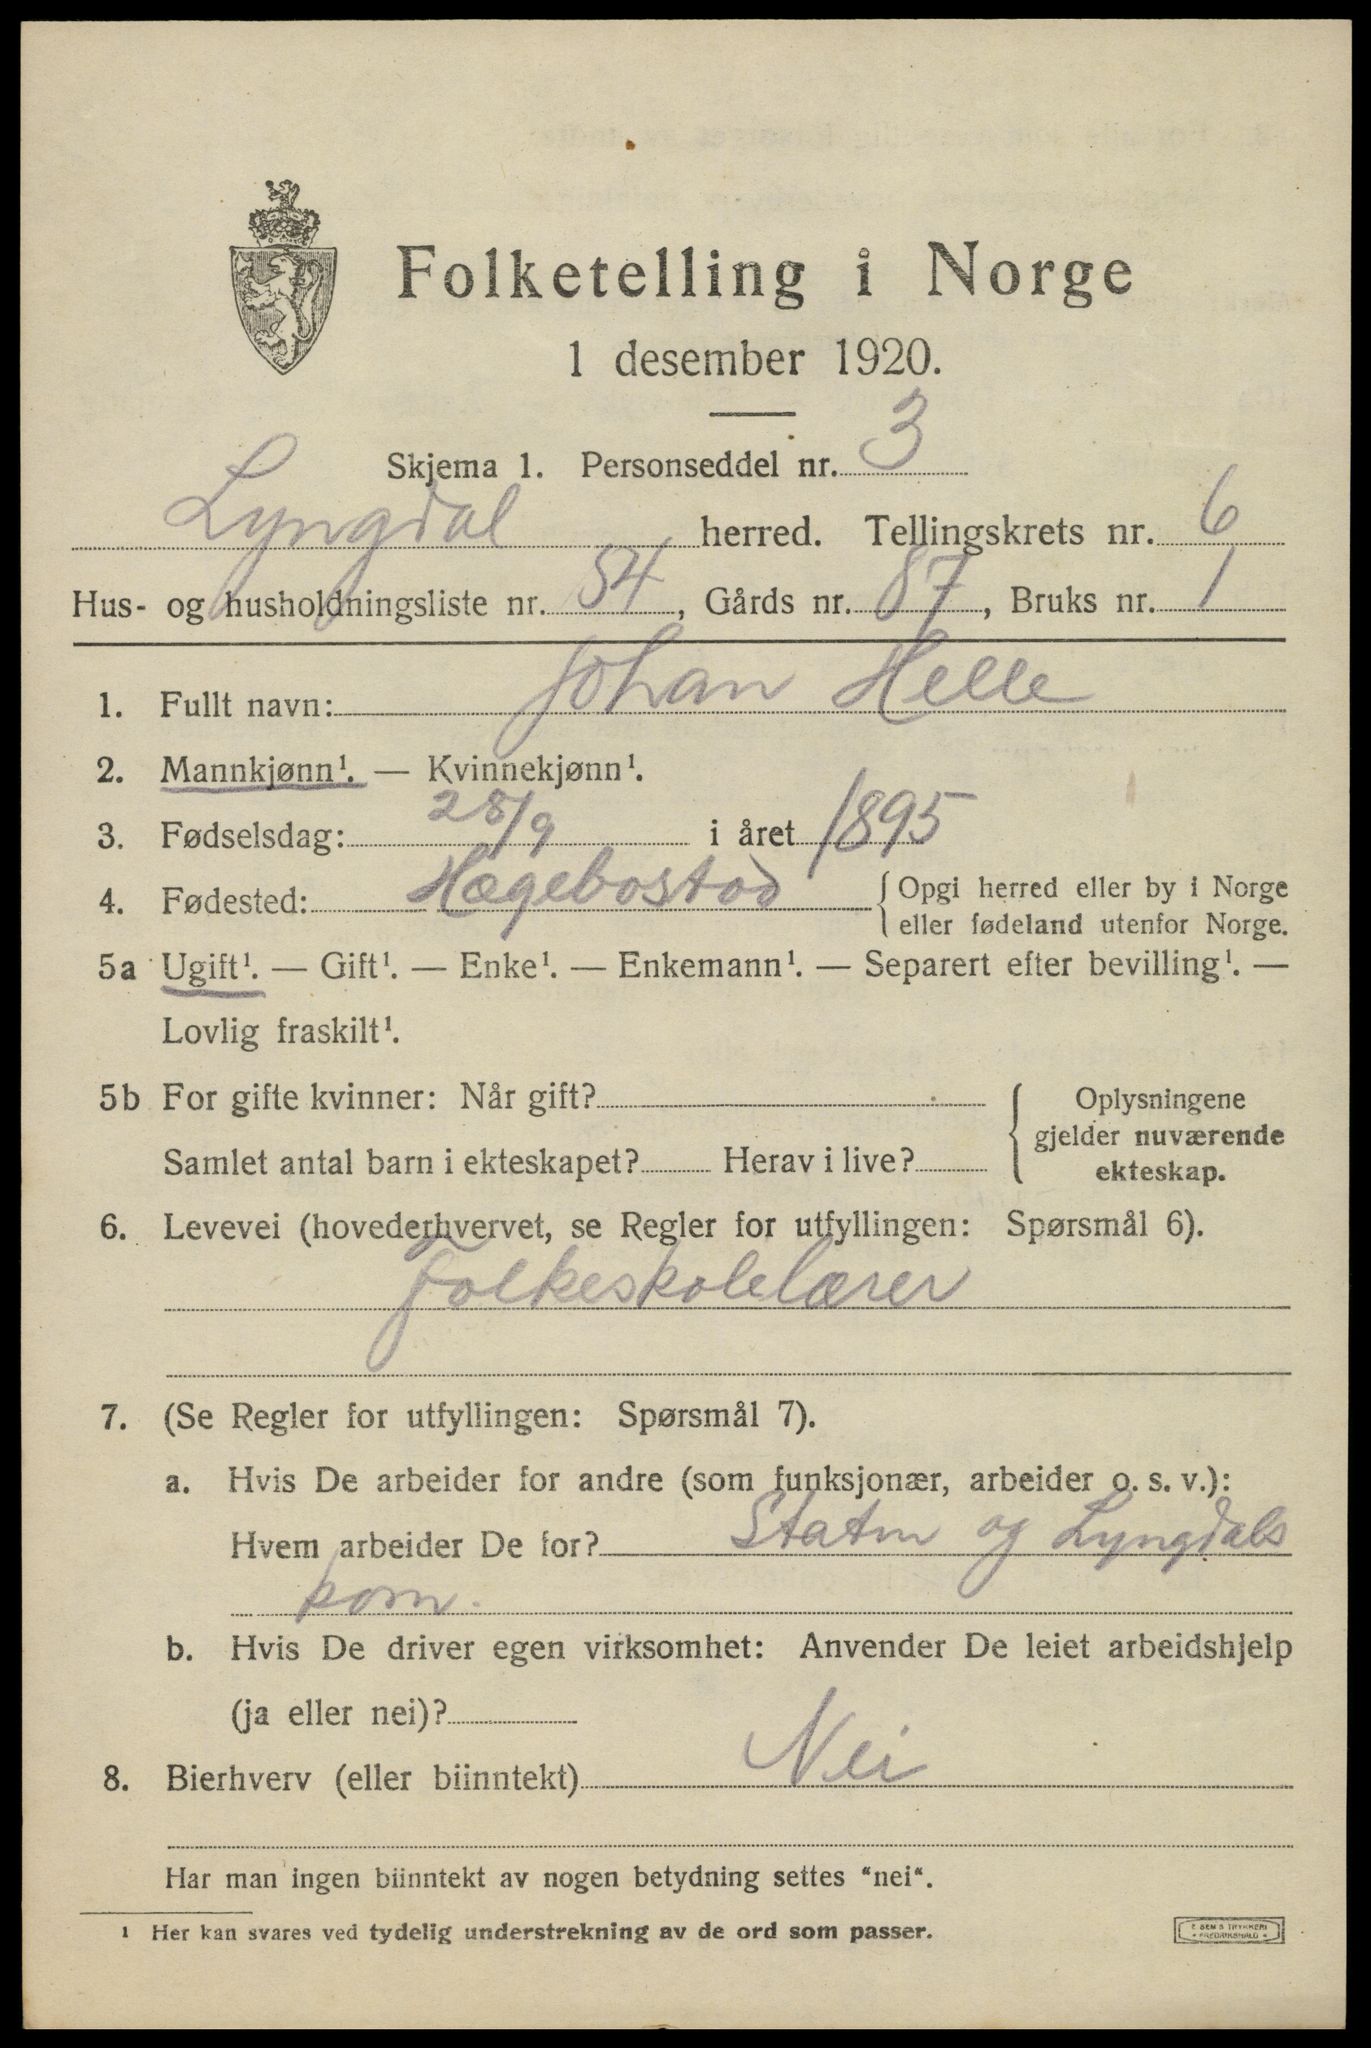 Folketelling i Norge
1 desember 1920.
Skjema 1. Personseddel nr. 3
Lyngdal herred. Tellingskrets nr. 6
Hus- og husholdningsliste nr. 54, Gårds nr. 87, Bruks nr. 1
1. Fullt navn: Johan Helle
2. Mannkjønn¹. — Kvinnekjønn¹.
3. Fødselsdag: 28/9 i året 1895
4. Fødested: Hægebostad {Opgi herred eller by i Norge
eller fødeland utenfor Norge.
5a Ugift¹. — Gift¹. — Enke¹. — Enkemann¹. — Separert efter bevilling¹. —
Lovlig fraskilt¹.
5b For gifte kvinner: Når gift? { Oplysningene
gjelder nuværende
Samlet antal barn i ekteskapet? Herav i live?
ekteskap.
6. Levevei (hovederhvervet, se Regler for utfyllingen: Spørsmål 6).
Folkeskolelærer
7. (Se Regler for utfyllingen: Spørsmål 7).
a. Hvis De arbeider for andre (som funksjonær, arbeider o. s. v.):
Hvem arbeider De for? Statm og Lyngdals
kom.
b. Hvis De driver egen virksomhet: Anvender De leiet arbeidshjelp
(ja eller nei)?
8. Bierhverv (eller biinntekt) Nei
Har man ingen biinntekt av nogen betydning settes "nei".
1 Her kan svares ved tydelig understrekning av de ord som passer.
E SEM'S TRYKKERI
• FREDRIKSHALD •